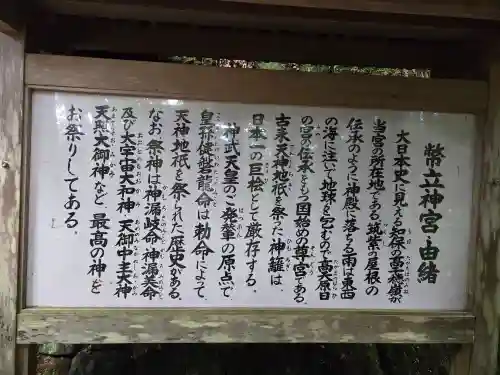 幣立神宮の由緒
大日本史に見える知保の高城が
当宮の所在地である。筑紫の屋根の
伝承のように神殿に落ちる雨は東西
の海に注いで地球を包むので高天原日
の宮の伝承をもつ国始めの尊宮である。
古来天神地祇を祭った神籬は、
日本一の巨桧として厳存する。
神武天皇のご発輦の原点で
皇孫健磐龍命は勅命によって、
天神地祇を祭られた歴史がある。
なお祭神は神漏岐命・神漏美命
及び大宇宙大和神・天御中主大神
天照大御神など、最高の神を
お祭りしてある。